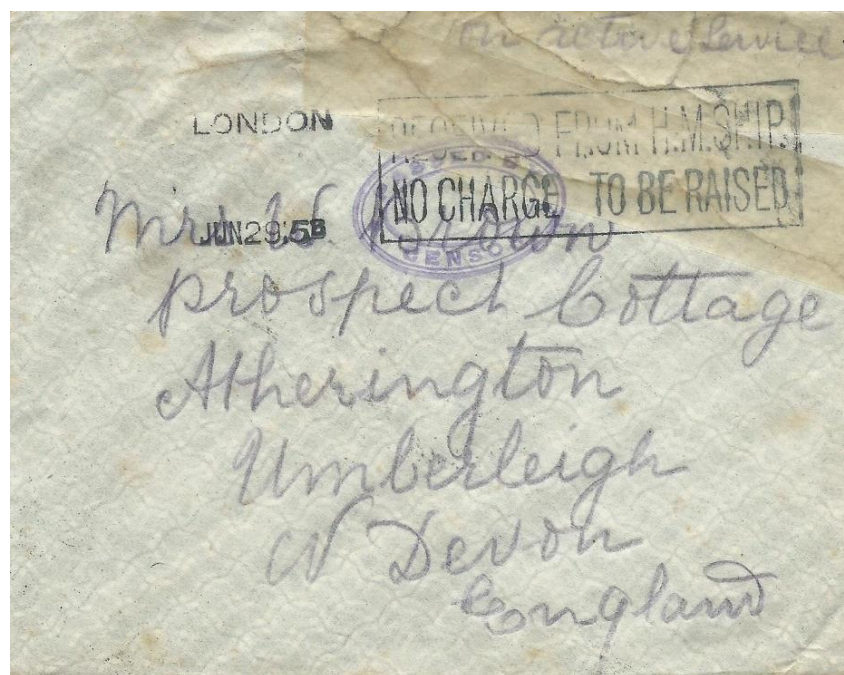 on active Service
LONDON
RECEIVED FROM H.M. SHIP.
NO CHARGE TO BE RAISED
Mrs W. Brown
JUN 29
CENSOR
Prospect Cottage
Atherington
Umberleigh
N Devon
England